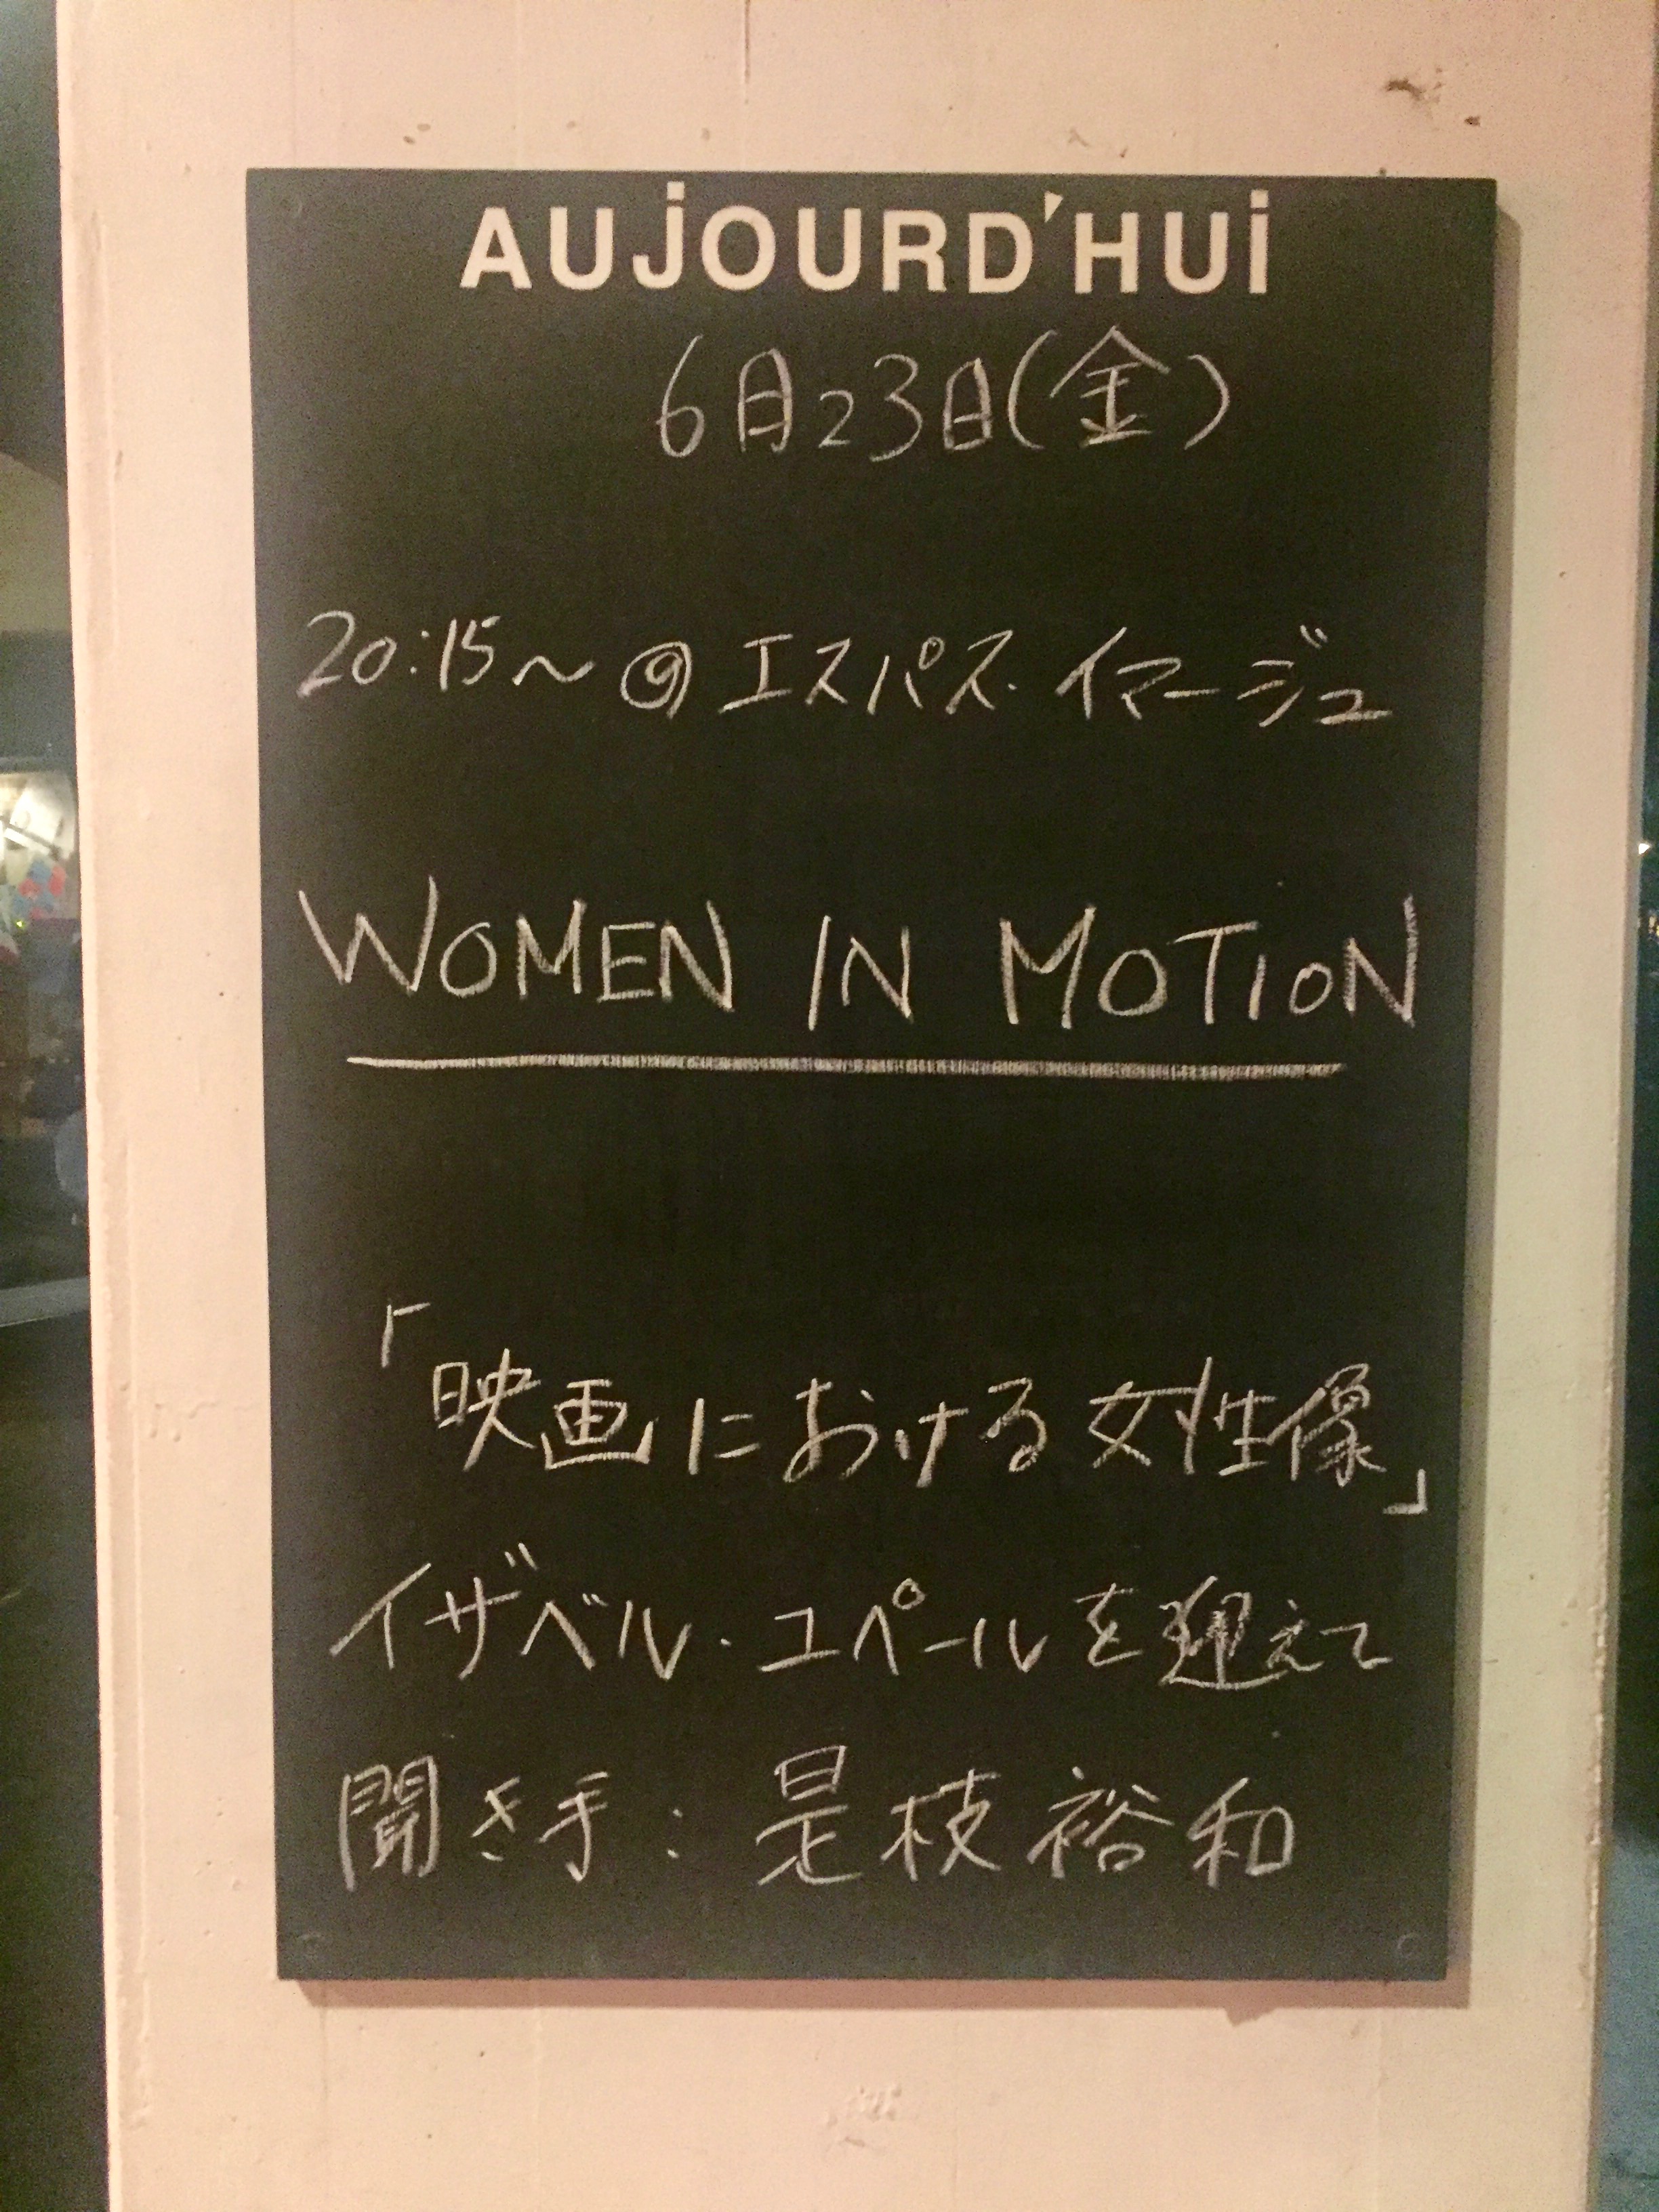 AUJOURD'HUI
6月23日(金)
20:15~@エスパス・イマージュ
WOMEN IN MOTION
「映画における女性像」
イザベル・ユペールを迎えて
聞き手:是枝裕和